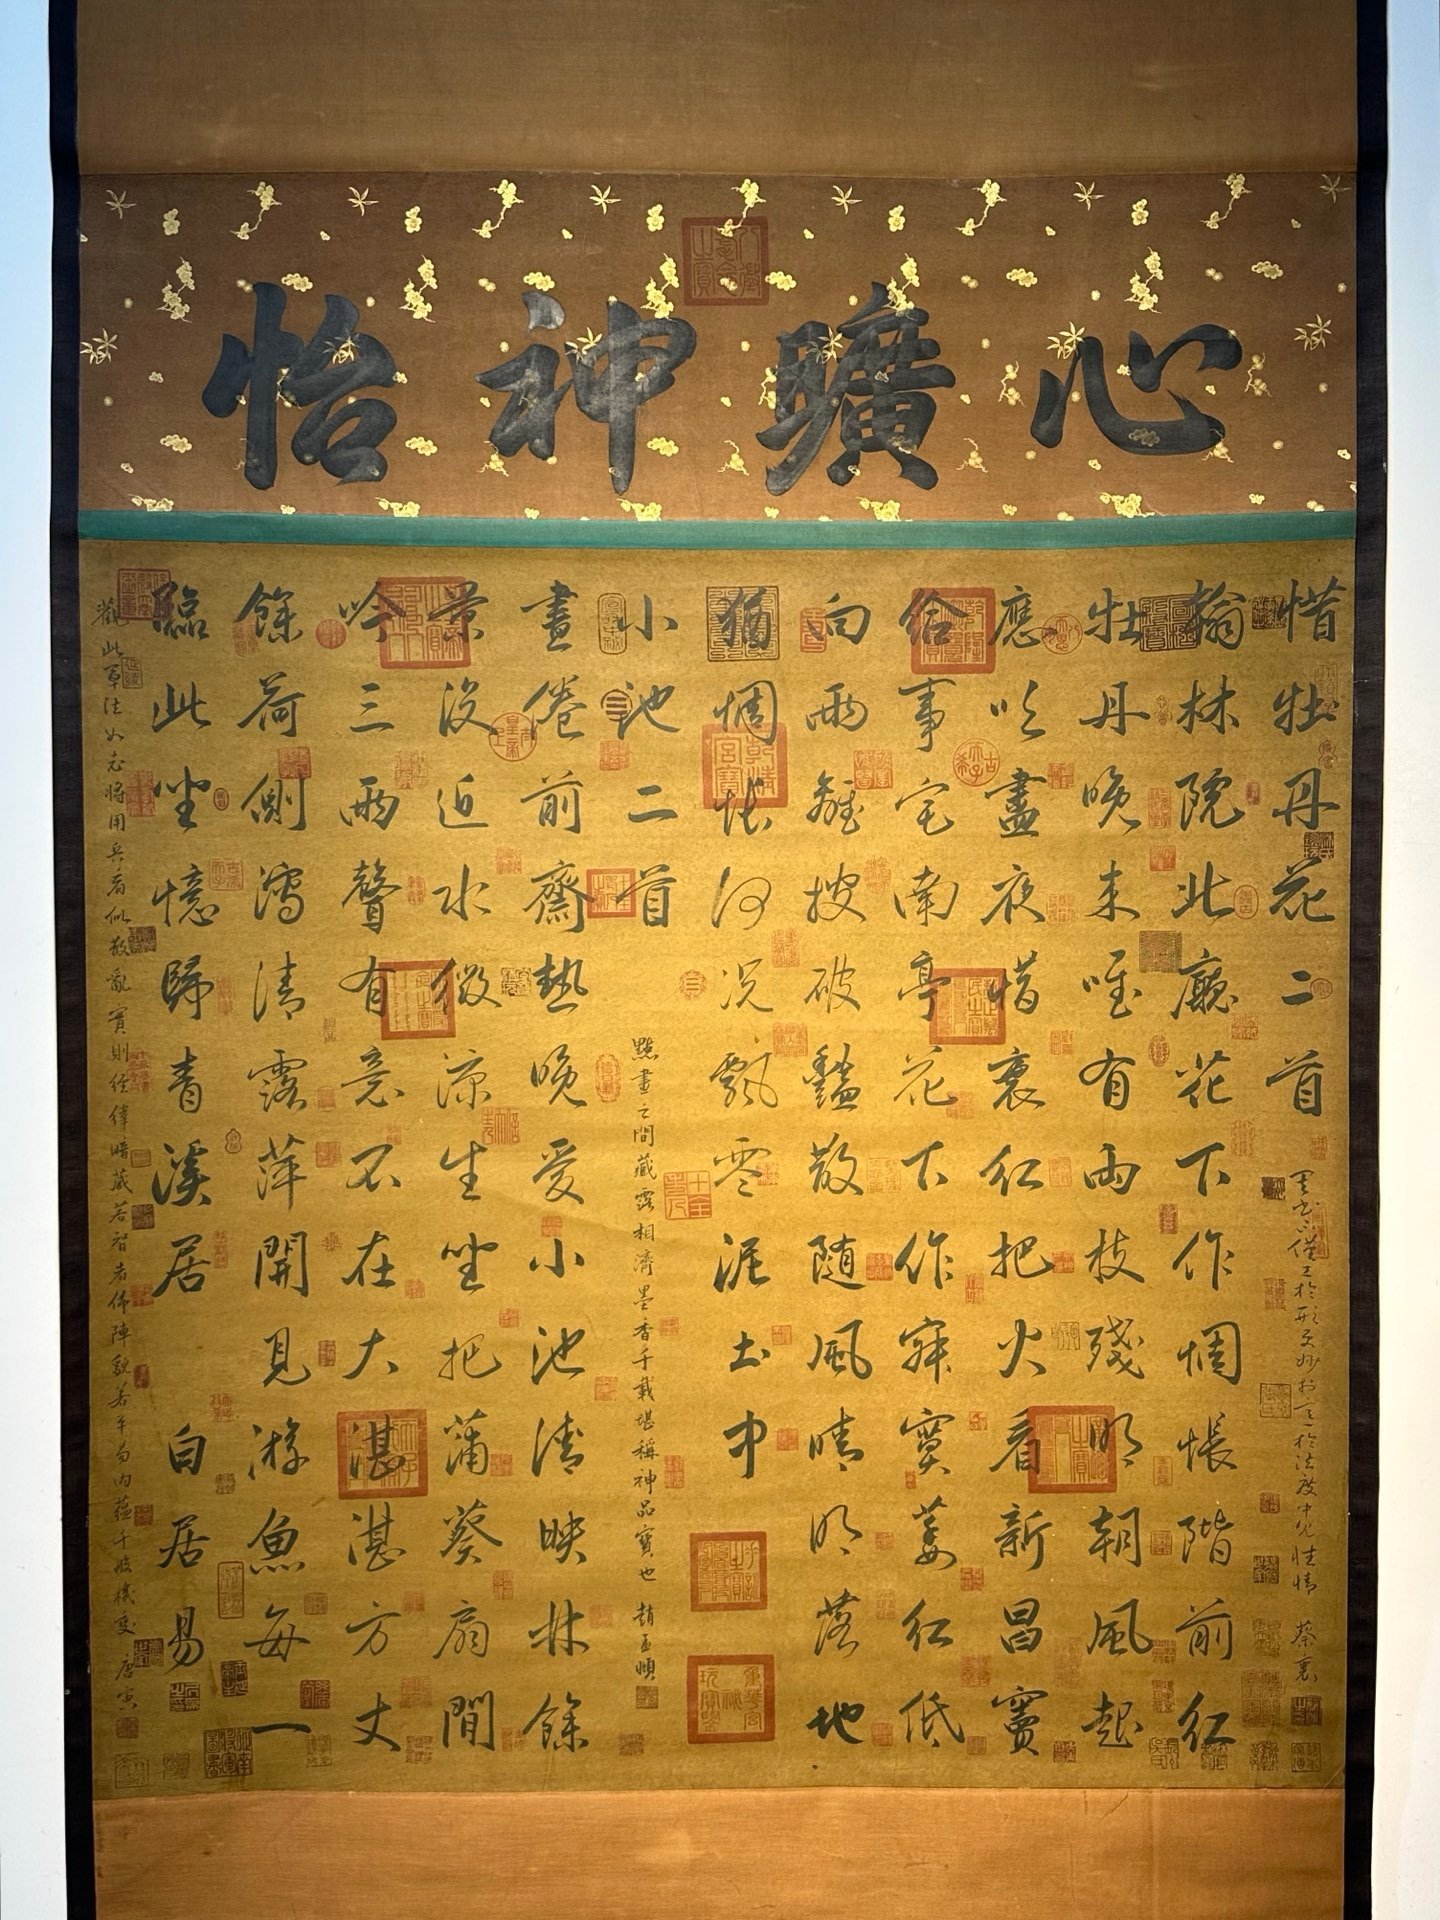 心曠神怡
惜牡丹花二首
其書不僅工於形更妙於意於法度中見性情 蔡襄
翰林院北廳花下作惆悵階前紅
牡丹晚来唯有兩枝殘明朝風起
應吹盡夜惜衰紅把火看新昌竇
給事宅南亭花下作寂寞萎紅低
向雨離披破豔散随風晴明落地
猶惆悵何况飄零泥土中
小池二首
點畫之間藏露相濟墨香千載堪稱神品寶也 趙孟頫
晝倦前齋熱晚愛小池清映林餘
景没近水微涼生坐把蒲葵扇閒
吟三兩聲有意不在大湛湛方丈
餘荷側瀉清露萍開見游魚每一
臨此坐憶歸青溪居 白居易
觀此草法如老將用兵看似散亂實則經緯暗藏若智者佈陣貌若平易内蘊千般機變 唐寅